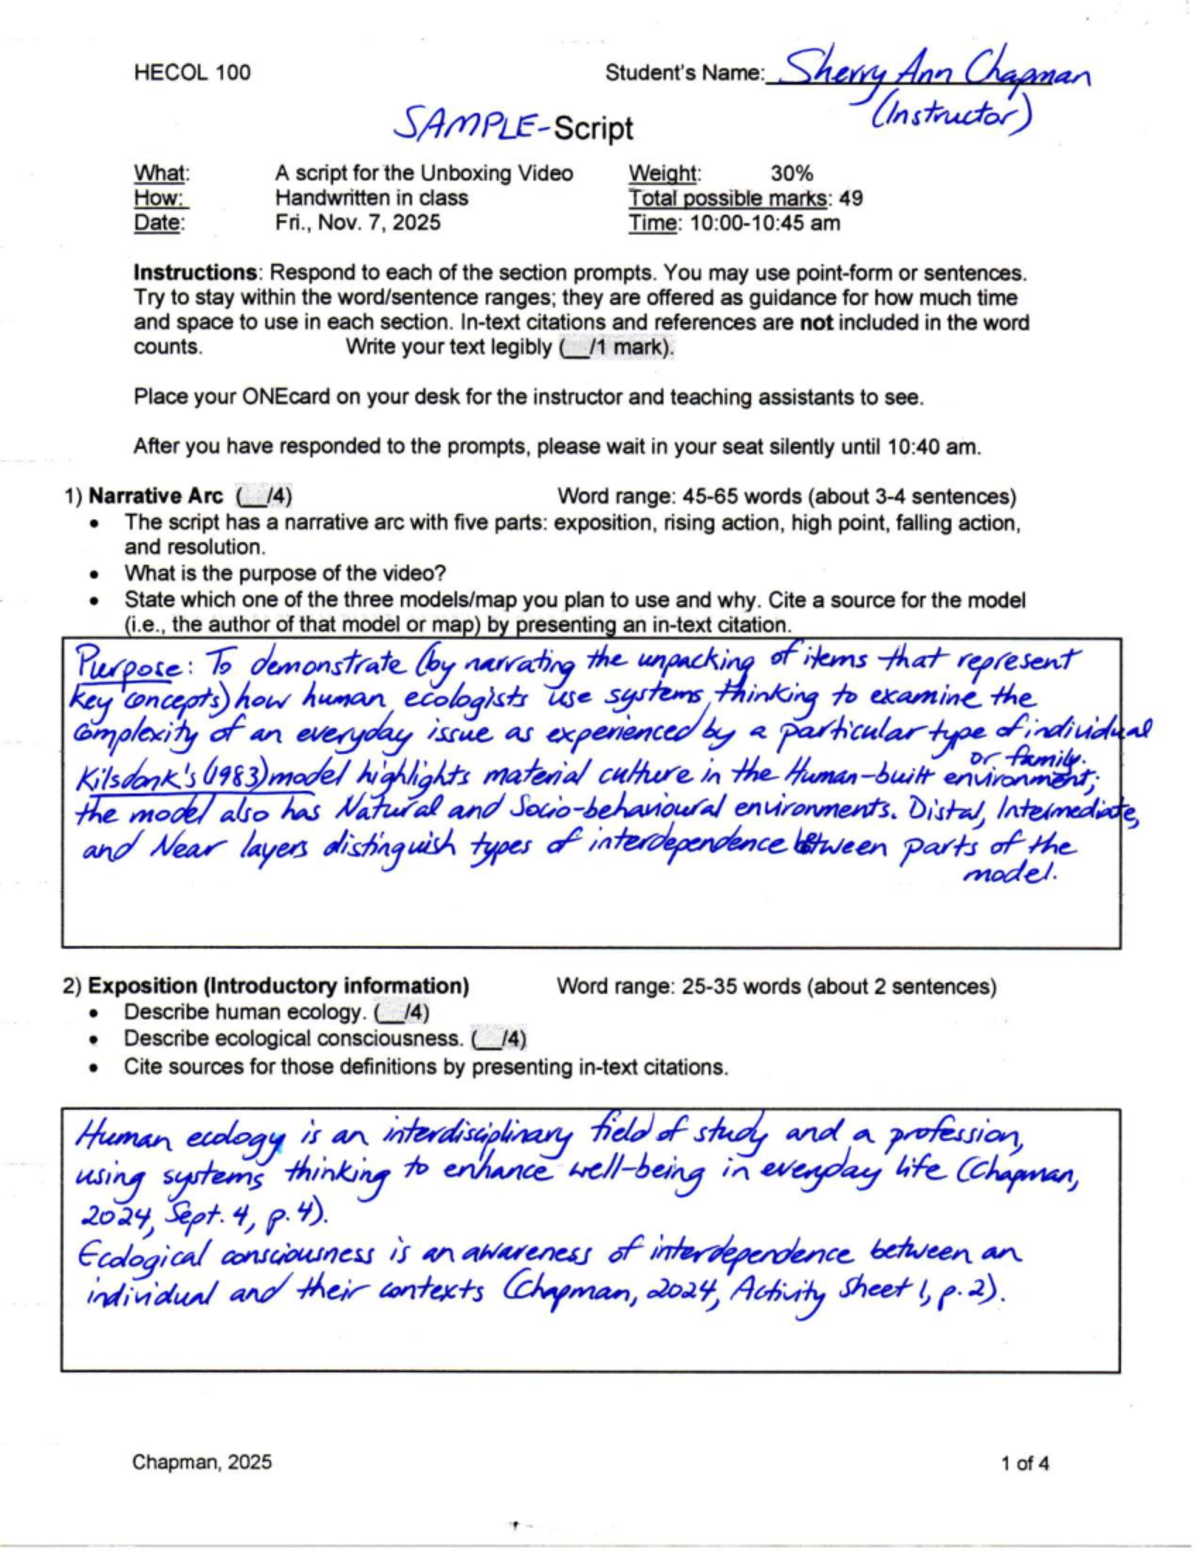 HECOL 100 Student's Name: Sherry Ann Chapman
(Instructor)
SAMPLE-Script
What: A script for the Unboxing Video Weight: 30%
How: Handwritten in class Total possible marks: 49
Date: Fri., Nov. 7, 2025 Time: 10:00-10:45 am
Instructions: Respond to each of the section prompts. You may use point-form or sentences.
Try to stay within the word/sentence ranges; they are offered as guidance for how much time
and space to use in each section. In-text citations and references are not included in the word
counts. Write your text legibly (__/1 mark).
Place your ONEcard on your desk for the instructor and teaching assistants to see.
After you have responded to the prompts, please wait in your seat silently until 10:40 am.
1) Narrative Arc (__/4) Word range: 45-65 words (about 3-4 sentences)
• The script has a narrative arc with five parts: exposition, rising action, high point, falling action,
and resolution.
• What is the purpose of the video?
• State which one of the three models/map you plan to use and why. Cite a source for the model
(i.e., the author of that model or map) by presenting an in-text citation.
Purpose: To demonstrate (by narrating the unpacking of items that represent
key concepts) how human ecologists use systems thinking to examine the
complexity of an everyday issue as experienced by a particular type of individual
or family.
Kilsdonk's (1983) model highlights material culture in the Human-built environment;
the model also has Natural and Socio-behavioural environments. Distal, Intermediate,
and Near layers distinguish types of interdependence between parts of the
model.
2) Exposition (Introductory information) Word range: 25-35 words (about 2 sentences)
• Describe human ecology. (__/4)
• Describe ecological consciousness. (__/4)
• Cite sources for those definitions by presenting in-text citations.
Human ecology is an interdisciplinary field of study and a profession,
using systems thinking to enhance well-being in everyday life (Chapman,
2024, Sept. 4, p. 4).
Ecological consciousness is an awareness of interdependence between an
individual and their contexts (Chapman, 2024, Activity Sheet 1, p. 2).
Chapman, 2025 1 of 4